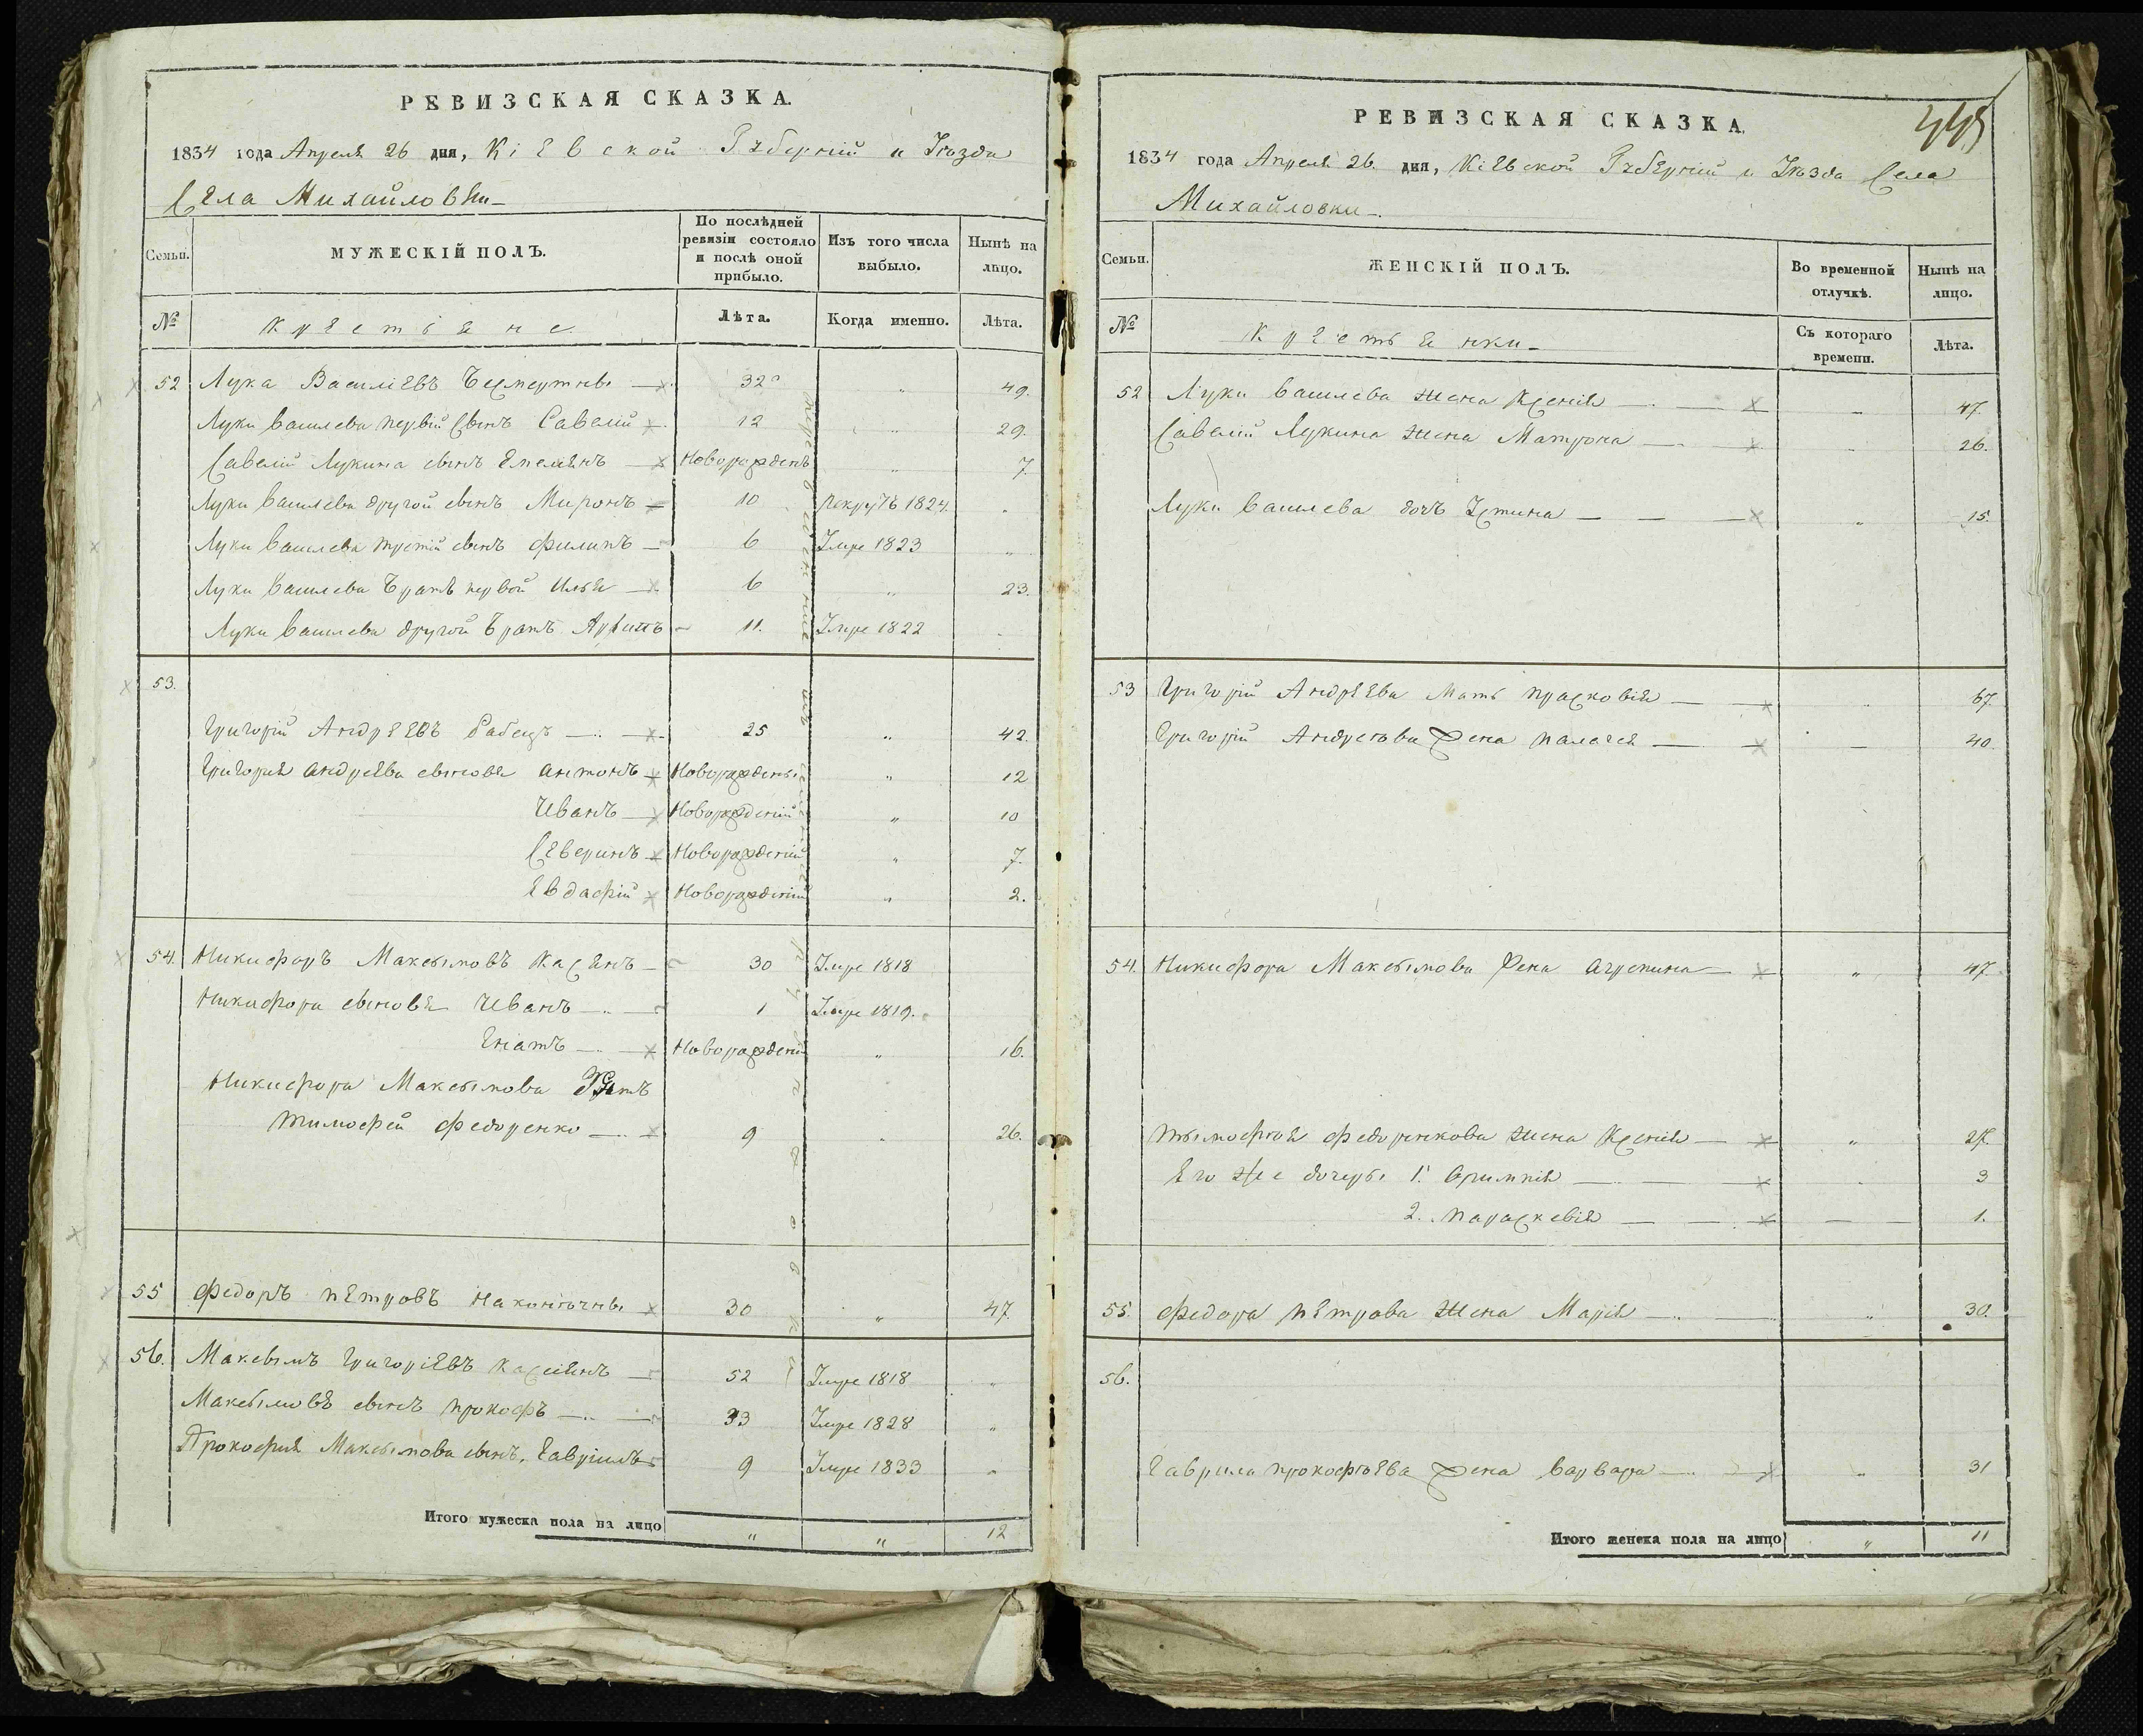 РЕВИЗСКАЯ СКАЗКА.
1834 года Апреля 26 дня, Кіевской Губерніи и Уѣзда
Села Михайловки
Семьи.
МУЖЕСКІЙ ПОЛЪ.
По послѣдней ревизіи состояло и послѣ оной прибыло.
Изъ того числа выбыло.
Нынѣ на лицо.
№
Крестьяне
Лѣта.
Когда именно.
Лѣта.
52 Лука Василіевъ 32 " 49.
Луки Василева первій сынъ Савелій 12 " 29.
Савелій Лукина сынъ Емелянъ Новорожденъ " 7.
Луки Василева другой сынъ Миронъ 10 рекрутъ 1824. "
Луки Василева третій сынъ Филипъ 6 Умре 1823 "
Луки Василева братъ первой Илья 6 " 23.
Луки Василева другой братъ 11. Умре 1822
53.
Григорій Андреевъ Бабецъ 25 " 42.
Григорія Андреева сыновя Антонъ Новорожденъ " 12
Иванъ Новорожденій " 10
Северинъ Новорожденій " 7.
Евдафій Новорожденій " 2.
54. Никифоръ Максымовъ Касянъ 30 Умре 1818
Никифора сыновя Иванъ 1 Умре 1819.
Гнатъ Новорожденій " 16.
Никифора Максымова
Тимофей Федоренко 9 " 26.
55 Федоръ Петровъ Наконечны 30 " 47.
56. Максымъ Григоріевъ Касіянъ 52 Умре 1818 "
Максымовъ сынъ Прокофъ 33 Умре 1828 "
Прокофия Максымова сынъ, Гавріилъ 9 Умре 1833 "
Итого мужеска пола на лицо " " 12
445
РЕВИЗСКАЯ СКАЗКА.
1834 года Апреля 26. дня, Кіевской Губерніи и Уѣзда Села
Михайловки
Семьи.
ЖЕНСКІЙ ПОЛЪ.
Во временной отлучкѣ.
Нынѣ на лицо.
№
Крестьянки
Съ котораго времени.
Лѣта.
52 Луки Василева жена Ксенія 47.
Савелій Лукина жена Матрона 26.
Луки Василева дочъ Устина " 15.
53 Григорій Андреева мать Прасковія " 67.
Григорій Андреева жена Палагея 40.
54. Никифора Максымова жена Агрепина " 47
Тымофѣя Федоренкова жена Ксенія " 27.
Его же дочеры 1. 3
2. Параскевія 1.
55. Федора Петрова жена Марія " 30.
56.
Гаврила Прокофѣева жена Варвара " 31
Итого женска пола на лицо " 11